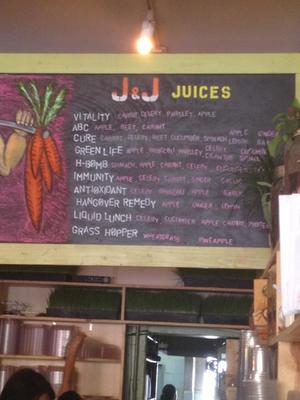 J&J JUICES
VITALITY CARROT, CELERY, PARSLEY, APPLE
ABC APPLE, BEET, CARROT
CURE CARROT, CELERY, BEET CUCUMBER SPINACH APPLE
GREEN LIFE APPLE, BROCCOLI PARSLEY, CELERY CUCUMBER SPINACH
H-BOMB SPINACH, APPLE, CARROT, CELERY
IMMUNITY APPLE, CELERY CARROT, GINGER
ANTIOXIDANT CELERY BROCCOLI APPLE GARLIC
HANGOVER REMEDY APPLE GINGER LEMON
LIQUID LUNCH CELERY CUCUMBER APPLE CARROT, PARSLEY
GRASS HOPPER WHEATGRASS PINEAPPLE